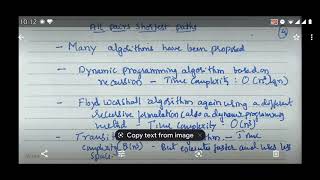 10:12
All pairs shortest paths
- Many algorithms have been proposed
- Dynamic programming algorithm based on
recursion - Time complexity: O(n³lgn)
- Floyd Warshall algorithm again using a different
recursive formulation (also a dynamic programming
method - Time complexity - O(n³)
- Transiti
Copy text from image
- Time
complexity - But executes faster and uses less
space